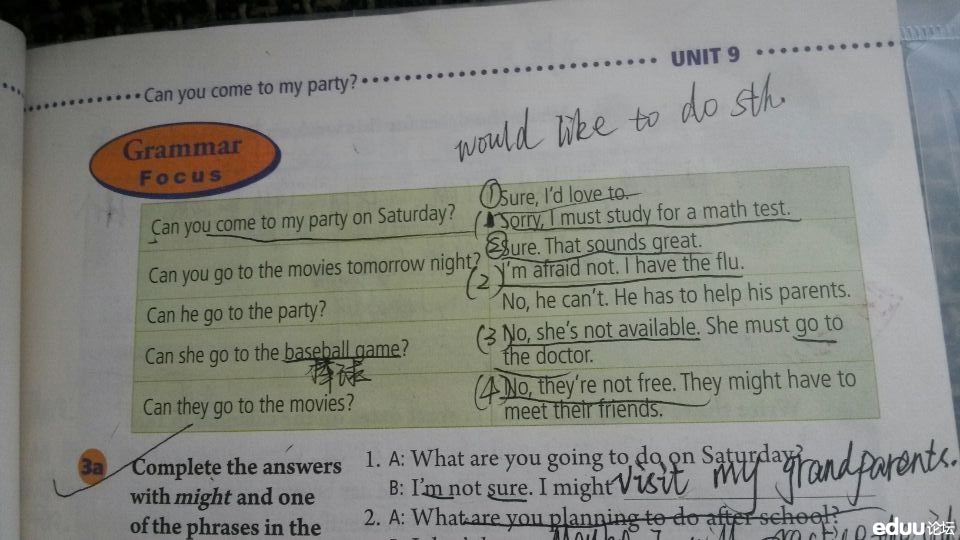 Can you come to my party?
UNIT 9
would like to do sth.
Grammar
Focus
Can you come to my party on Saturday?
① Sure, I'd love to.
(1 Sorry, I must study for a math test.
Can you go to the movies tomorrow night?
② Sure. That sounds great.
(2) I'm afraid not. I have the flu.
Can he go to the party?
No, he can't. He has to help his parents.
Can she go to the baseball game?
棒球
(3 No, she's not available. She must go to
the doctor.
Can they go to the movies?
(4 No, they're not free. They might have to
meet their friends.
3a
Complete the answers
with might and one
of the phrases in the
1. A: What are you going to do on Saturday?
B: I'm not sure. I might visit my grandparents.
2. A: What are you planning to do after school?
eduu论坛